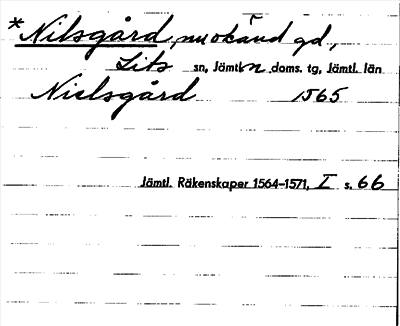 *Nilsgård, nu okänd gd.,
Lits sn, Jämtl. n. doms. tg, Jämtl. län
Nielsgård 1565
Jämtl. Räkenskaper 1564–1571, I s. 66